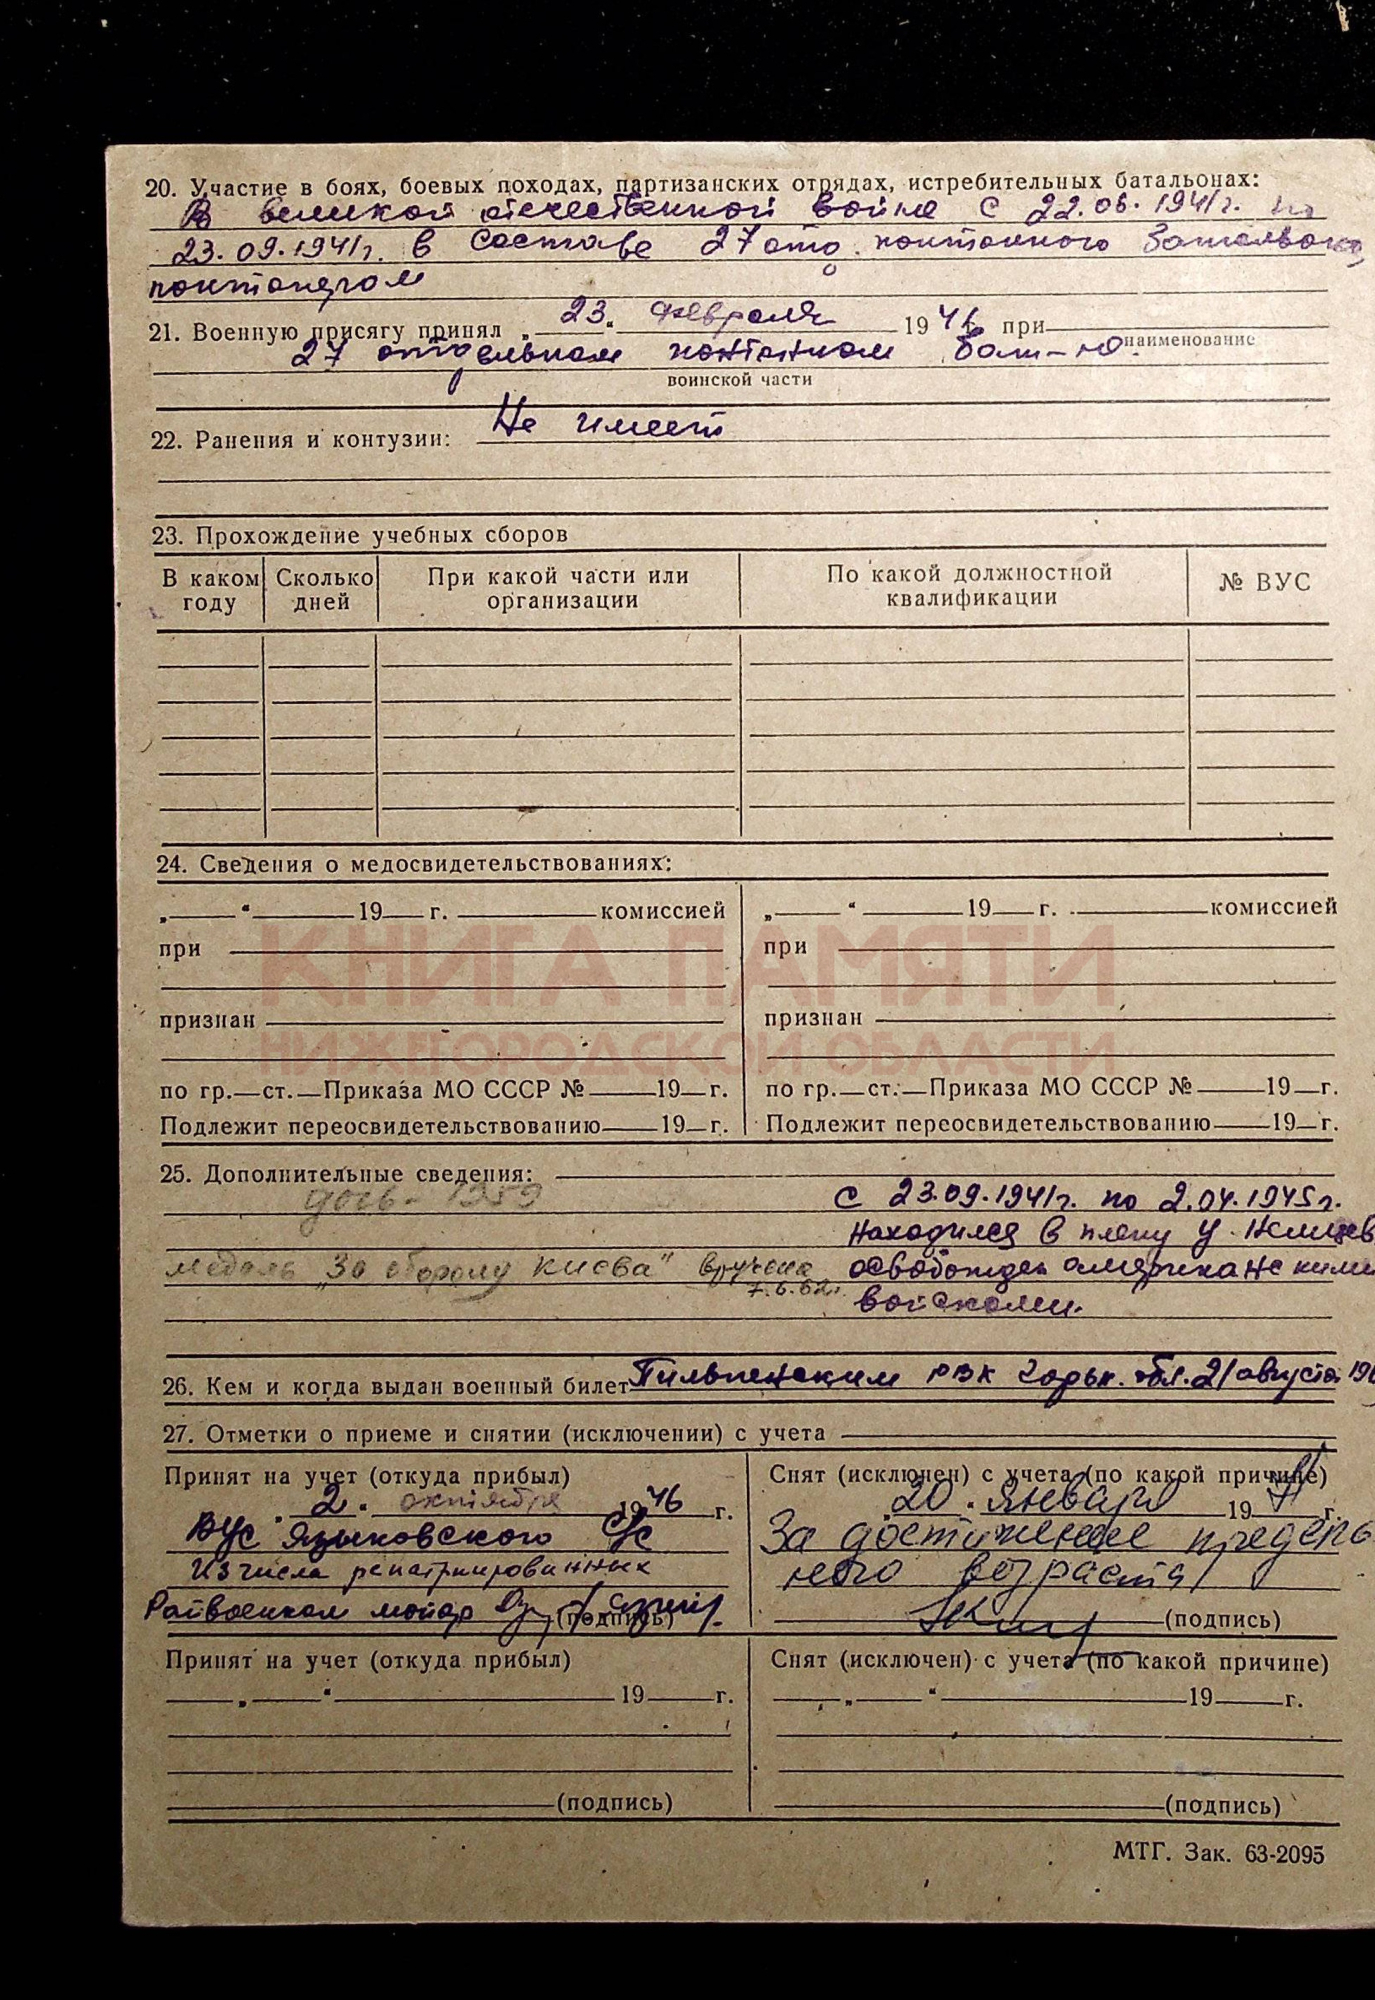 20. Участие в боях, боевых походах, партизанских отрядах, истребительных батальонах:
В великой отечественной войне с 22.06.1941г. по
23.09.1941г. в составе 27 отд. понтонного батальона,
понтонером
21. Военную присягу принял „ 23 “ февраля 1941 при
27 отдельном понтонном бат-не.
наименование
воинской части
22. Ранения и контузии: Не имеет
23. Прохождение учебных сборов
В каком году Сколько дней При какой части или организации По какой должностной квалификации № ВУС
24. Сведения о медосвидетельствованиях:
„ “ 19 г. комиссией „ “ 19 г. комиссией
при при
признан признан
КНИГА ПАМЯТИ
НИЖЕГОРОДСКОЙ ОБЛАСТИ
по гр. ст. Приказа МО СССР № 19 г. по гр. ст. Приказа МО СССР № 19 г.
Подлежит переосвидетельствованию 19 г. Подлежит переосвидетельствованию 19 г.
25. Дополнительные сведения:
дочь - 1959
с 23.09.1941г. по 2.04.1945г.
находился в плену у немцев
медаль „За оборону Киева" вручена 7.6.62г.
освобожден американскими
войсками.
26. Кем и когда выдан военный билет Пильненским РВК Горьк. обл. 21 августа 19
27. Отметки о приеме и снятии (исключении) с учета
Принят на учет (откуда прибыл)
2 октября 1946 г.
ВУС Языковского с/с
из числа репатриированных
Райвоенком майор
(подпись)
Снят (исключен) с учета (по какой причине)
20 января 1971 г.
За достижение предель
ного возраста
(подпись)
Принят на учет (откуда прибыл) Снят (исключен) с учета (по какой причине)
„ “ 19 г. „ “ 19 г.
(подпись) (подпись)
МТГ. Зак. 63-2095